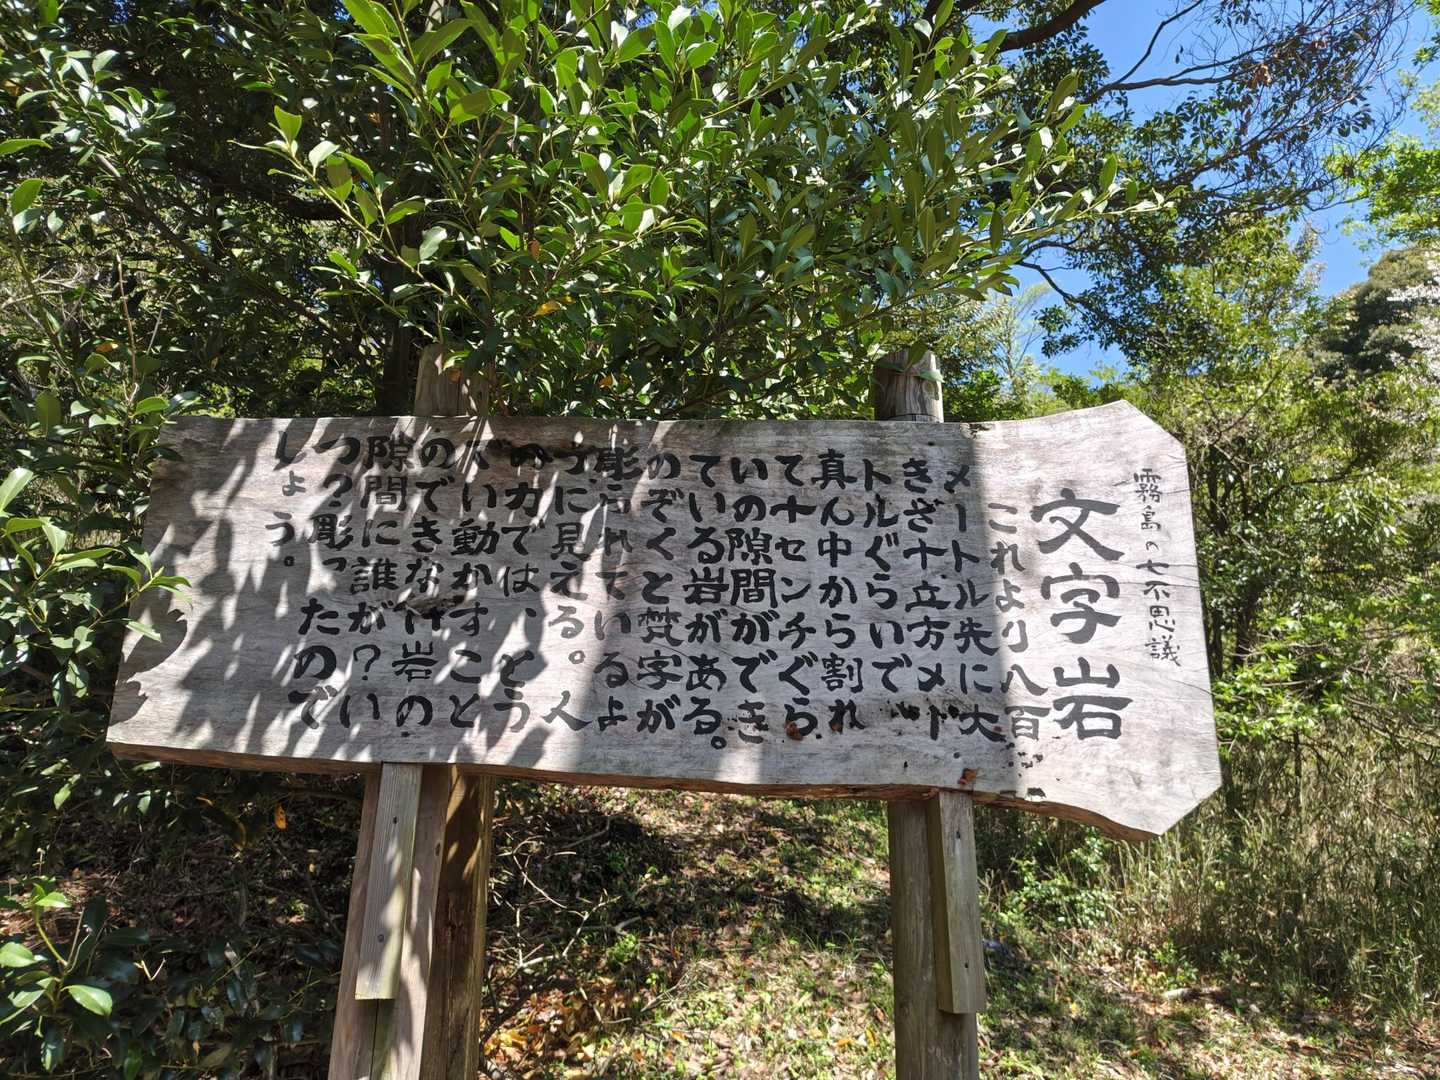 霧島の七不思議
文字岩
これより八百
メートル先に大
きさ十立方メー
トルぐらいで
真ん中から割れ
て十センチぐら
いの隙間ができ
ている岩がある。
のぞくと梵字が
彫られているよ
うに見える。人
の力では、とう
てい動かすこと
のできない岩の
隙間に誰が？い
つ？彫ったので
しょう。